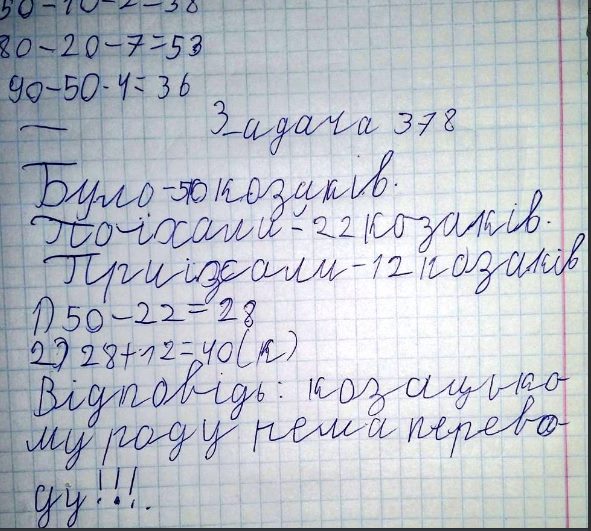 50-10-2=38
80-20-7=53
90-50-4=36
Задача 378
Було-50 козаків.
Поїхали-22 козаків.
Приїхали-12 козаків
1) 50-22=28
2) 28+12=40(к)
Відповідь: козацько-
му роду нема перево-
ду!!!.